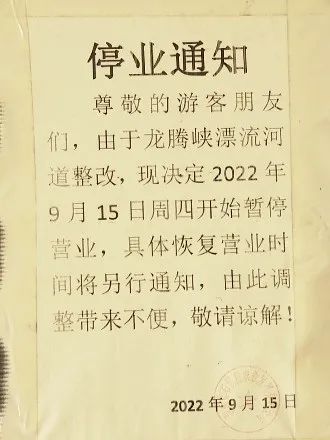 停业通知
尊敬的游客朋友
们，由于龙腾峡漂流河
道整改，现决定 2022 年
9 月 15 日周四开始暂停
营业，具体恢复营业时
间将另行通知，由此调
整带来不便，敬请谅解！
2022 年 9 月 15 日